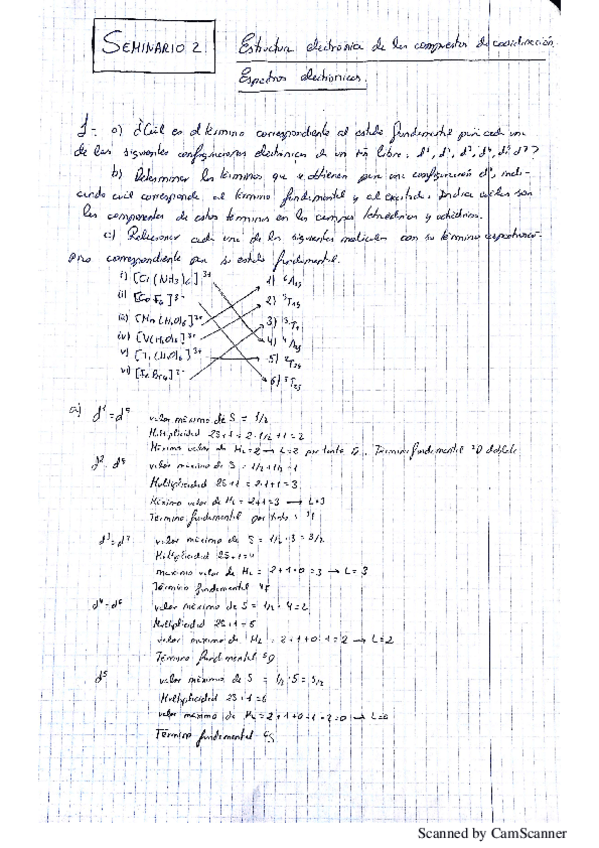 SEMINARIO 2. Estructura electrónica de los compuestos de coordinación.
Espectros electrónicos.
1- a) ¿Cuál es el término correspondiente al estado fundamental para cada un
de las siguientes configuraciones electrónicas de un ión libre: d¹, d²,
b) Determinar los términos que se obtienen para una configuración d², indi-
cando cuál corresponde al término fundamental y al excitado. Indica cuáles son
las componentes de estos términos en los campos tetraédricos y octaédricos.
c) Relacionar cada una de las siguientes moléculas con su término espectroscó-
pico correspondiente para su estado fundamental.
i) [Cr(NH3)6]3+ 1) 6A1g
ii) [CoF6]3- 2) 3T1g
iii) [Mn(H2O)6]2+ 3)
iv) [V(H2O)6]3+ 4) 4A2g
v) [Ti(H2O)6]3+ 5) 2T2g
vi) 6) 5T2g
a) valor máximo de S = 1/2
Multiplicidad 2S+1 = 2·1/2+1=2
Máximo valor de ML=2 → L=2 por tanto Término fundamental ²D doblete
valor máximo de S = 1/2+1/2=1
Multiplicidad 2S+1 = 2·1+1=3
Máximo valor de ML = 2+1=3 → L=3
Término fundamental por tanto
valor máximo de S = 1/2·3=3/2
Multiplicidad 2S+1=4
maximo valor de ML = 2+1+0=3 → L=3
Término fundamental 4F
d4-d6 valor máximo de S = 1/2·4=2
Multiplicidad 2S+1=5
valor maximo de ML = 2+1+0-1=2 → L=2
Término fundamental 5D
d5 valor máximo de S = 1/2·5=5/2
Multiplicidad 2S+1=6
valor máximo de ML=2+1+0-1-2=0 → L=0
Término fundamental 6S
Scanned by CamScanner